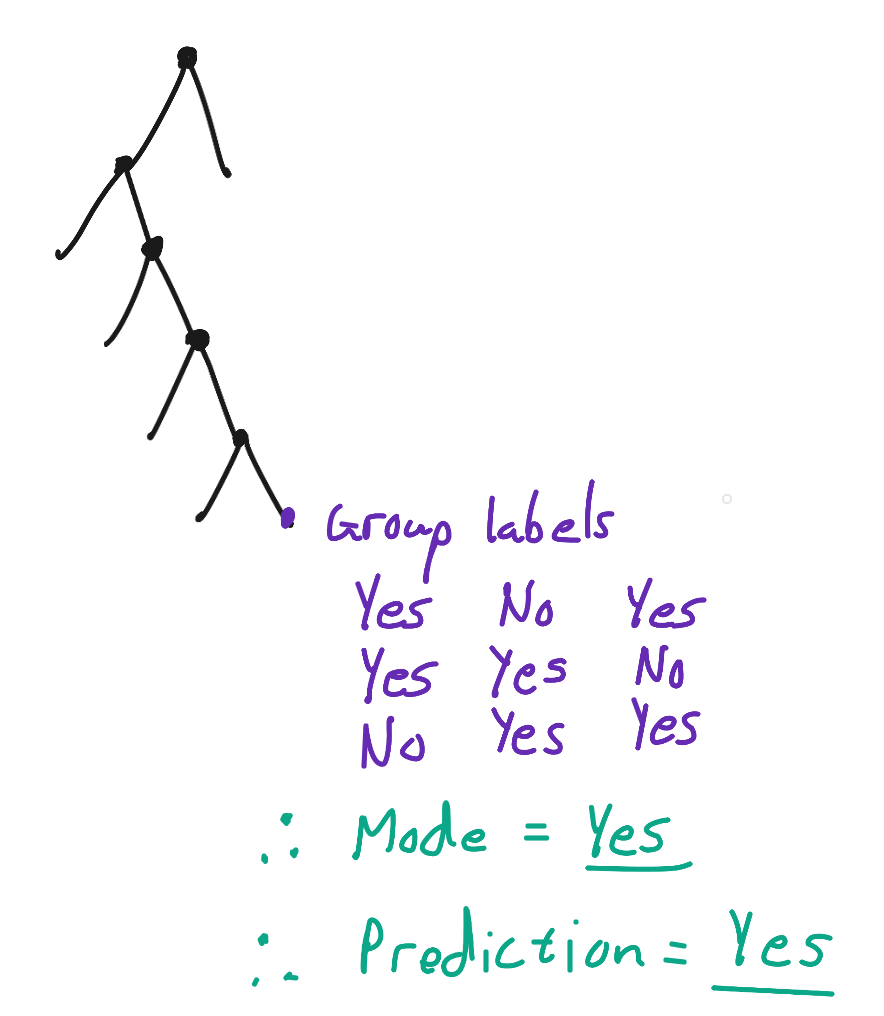 Group labels
Yes No Yes
Yes Yes No
No Yes Yes
∴ Mode = Yes
∴ Prediction = Yes